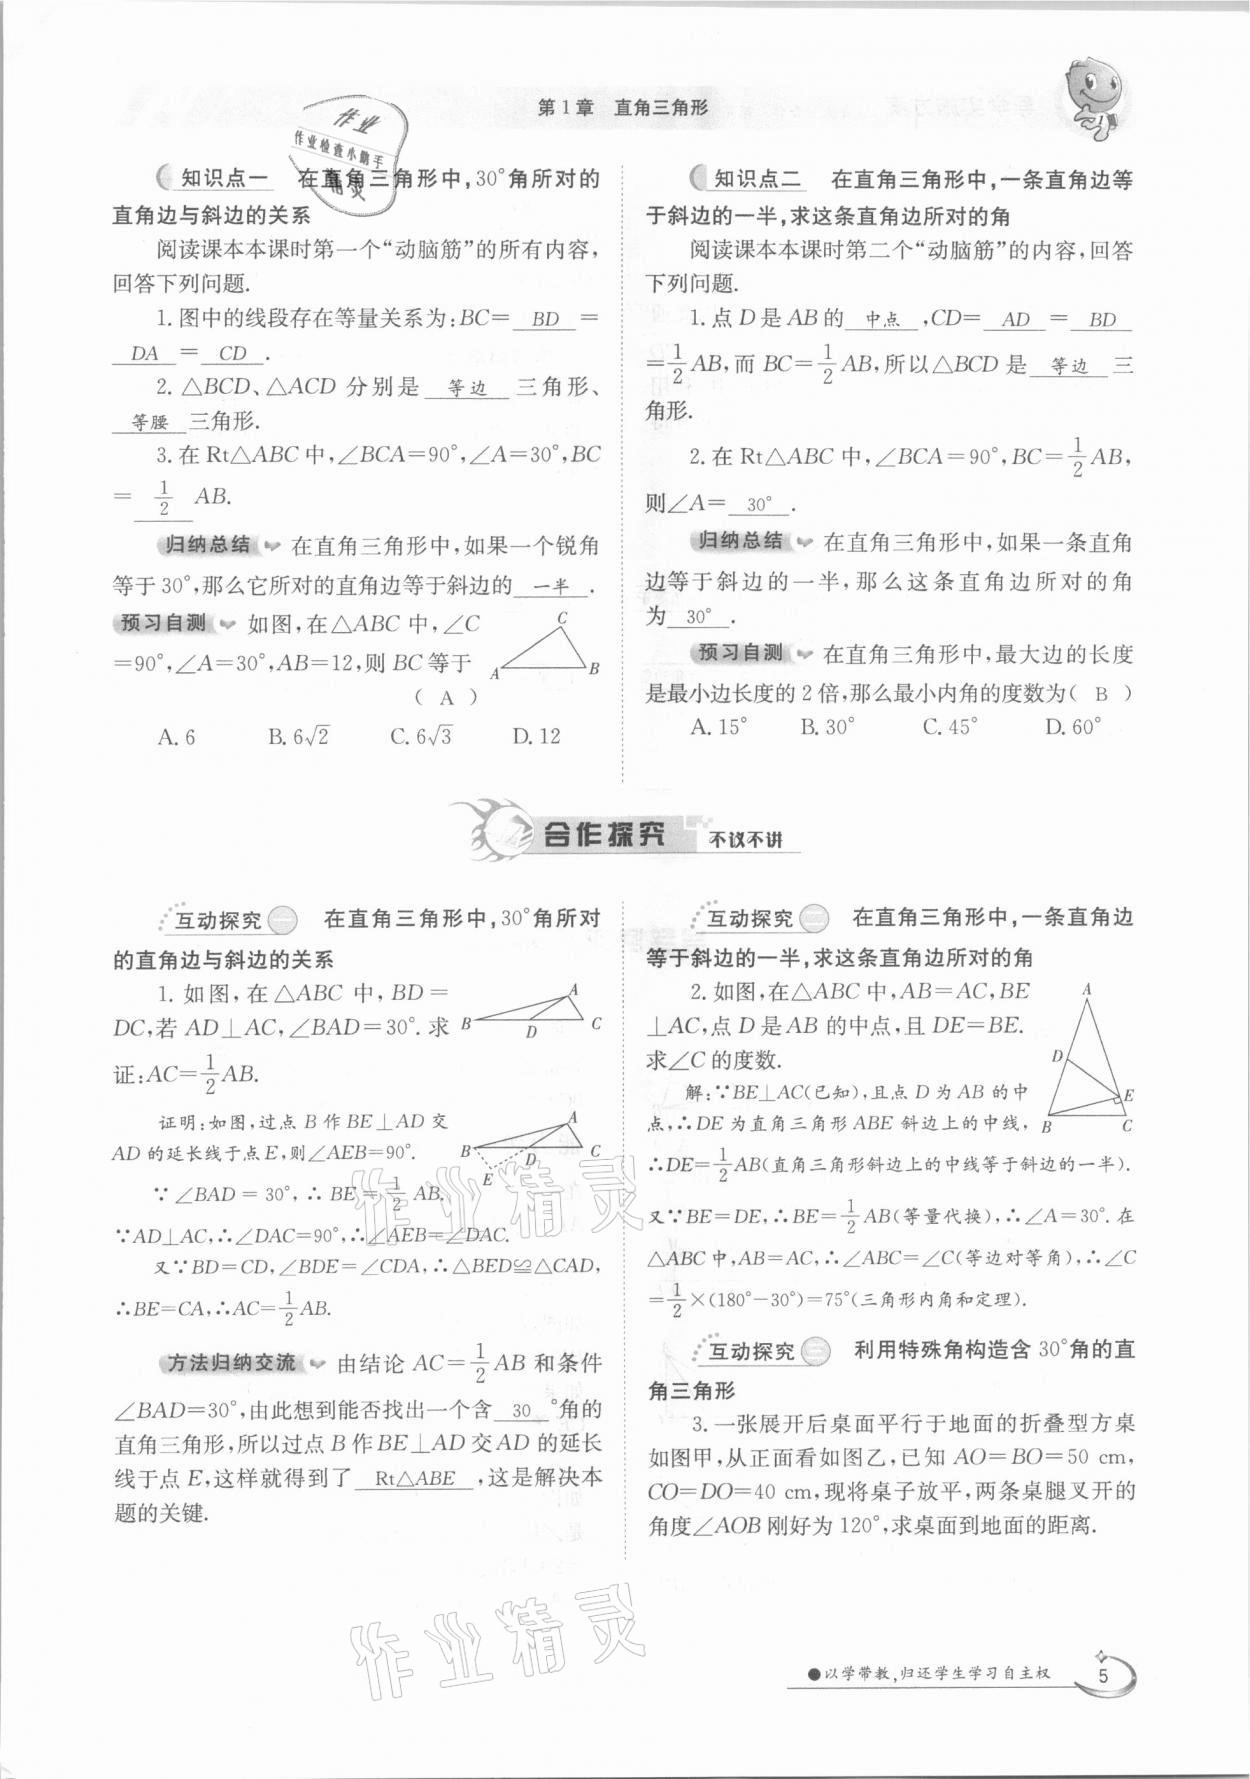 第1章 直角三角形
作业
作业检查小助手
精灵
知识点一 在直角三角形中,30°角所对的
直角边与斜边的关系
阅读课本本课时第一个“动脑筋”的所有内容,
回答下列问题.
1. 图中的线段存在等量关系为:BC= BD =
DA = CD .
2. △BCD、△ACD 分别是 等边 三角形、
等腰 三角形.
3. 在 Rt△ABC 中,∠BCA=90°,∠A=30°,BC
= 1/2 AB.
归纳总结 在直角三角形中,如果一个锐角
等于 30°,那么它所对的直角边等于斜边的 一半 .
预习自测 如图,在△ABC 中,∠C
=90°,∠A=30°,AB=12,则 BC 等于
( A )
A B C
A. 6 B. 6√2 C. 6√3 D. 12
知识点二 在直角三角形中,一条直角边等
于斜边的一半,求这条直角边所对的角
阅读课本本课时第二个“动脑筋”的内容,回答
下列问题.
1. 点 D 是 AB 的 中点 ,CD= AD = BD
=1/2AB,而 BC=1/2AB,所以△BCD 是 等边 三
角形.
2. 在 Rt△ABC 中,∠BCA=90°,BC=1/2AB,
则∠A= 30° .
归纳总结 在直角三角形中,如果一条直角
边等于斜边的一半,那么这条直角边所对的角
为 30° .
预习自测 在直角三角形中,最大边的长度
是最小边长度的 2 倍,那么最小内角的度数为( B )
A. 15° B. 30° C. 45° D. 60°
合作探究 不议不讲
互动探究 一 在直角三角形中,30°角所对
的直角边与斜边的关系
1. 如图,在△ABC 中,BD=
DC,若 AD⊥AC,∠BAD=30°. 求
证:AC=1/2AB.
A B D C
证明:如图,过点 B 作 BE⊥AD 交
AD 的延长线于点 E,则∠AEB=90°.
A B D C E
∵∠BAD=30°,∴BE=1/2AB.
∵AD⊥AC,∴∠DAC=90°,∴∠AEB=∠DAC.
又∵BD=CD,∠BDE=∠CDA,∴△BED≌△CAD,
∴BE=CA,∴AC=1/2AB.
方法归纳交流 由结论 AC=1/2AB 和条件
∠BAD=30°,由此想到能否找出一个含 30 °角的
直角三角形,所以过点 B 作 BE⊥AD 交 AD 的延长
线于点 E,这样就得到了 Rt△ABE ,这是解决本
题的关键.
互动探究 二 在直角三角形中,一条直角边
等于斜边的一半,求这条直角边所对的角
2. 如图,在△ABC 中,AB=AC,BE
⊥AC,点 D 是 AB 的中点,且 DE=BE.
求∠C 的度数.
A D E B C
解:∵BE⊥AC(已知),且点 D 为 AB 的中
点,∴DE 为直角三角形 ABE 斜边上的中线,
∴DE=1/2AB(直角三角形斜边上的中线等于斜边的一半).
又∵BE=DE,∴BE=1/2AB(等量代换),∴∠A=30°. 在
△ABC 中,AB=AC,∴∠ABC=∠C(等边对等角),∴∠C
=1/2×(180°-30°)=75°(三角形内角和定理).
互动探究 三 利用特殊角构造含 30°角的直
角三角形
3. 一张展开后桌面平行于地面的折叠型方桌
如图甲,从正面看如图乙,已知 AO=BO=50 cm,
CO=DO=40 cm,现将桌子放平,两条桌腿叉开的
角度∠AOB 刚好为 120°,求桌面到地面的距离.
作业精灵
作业精灵
●以学带教,归还学生学习自主权
5